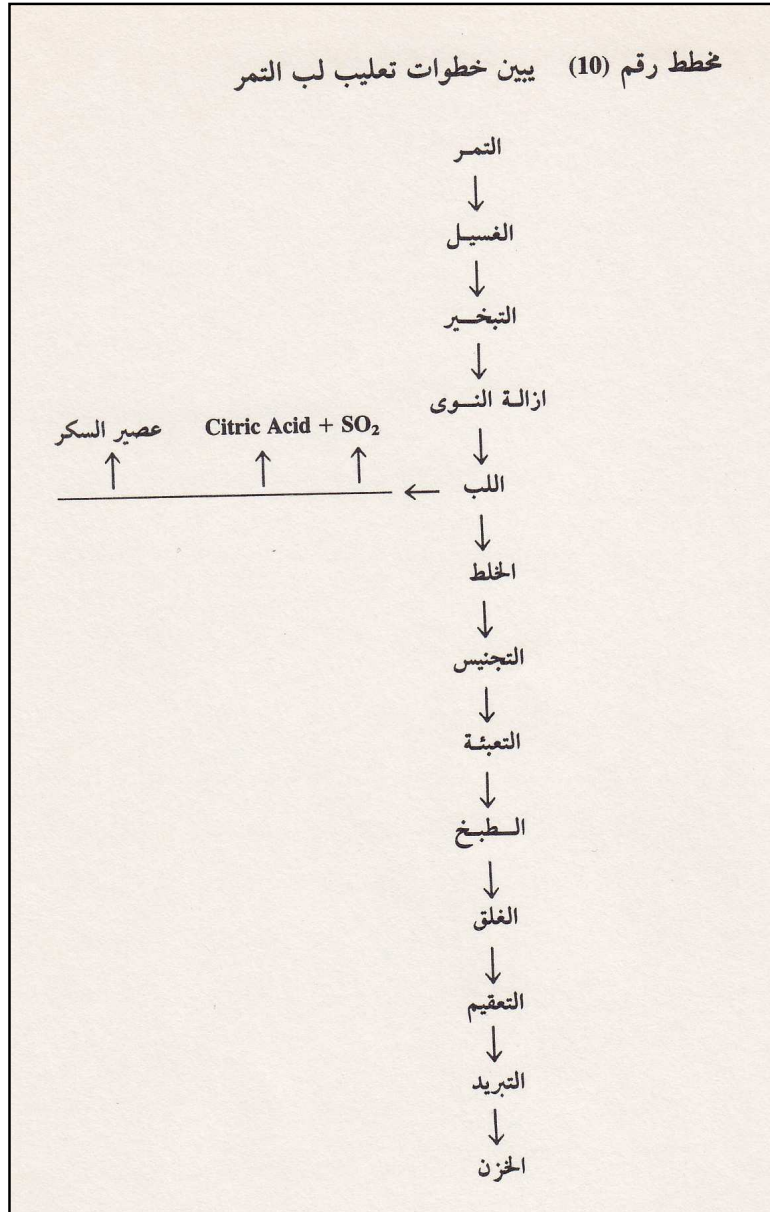 مخطط رقم (10) يبين خطوات تعليب لب التمر
التمر
الغسيل
التبخير
ازالة النوى
عصير السكر Citric Acid + SO₂
اللب
الخلط
التجنيس
التعبئة
الطبخ
الغلق
التعقيم
التبريد
الخزن